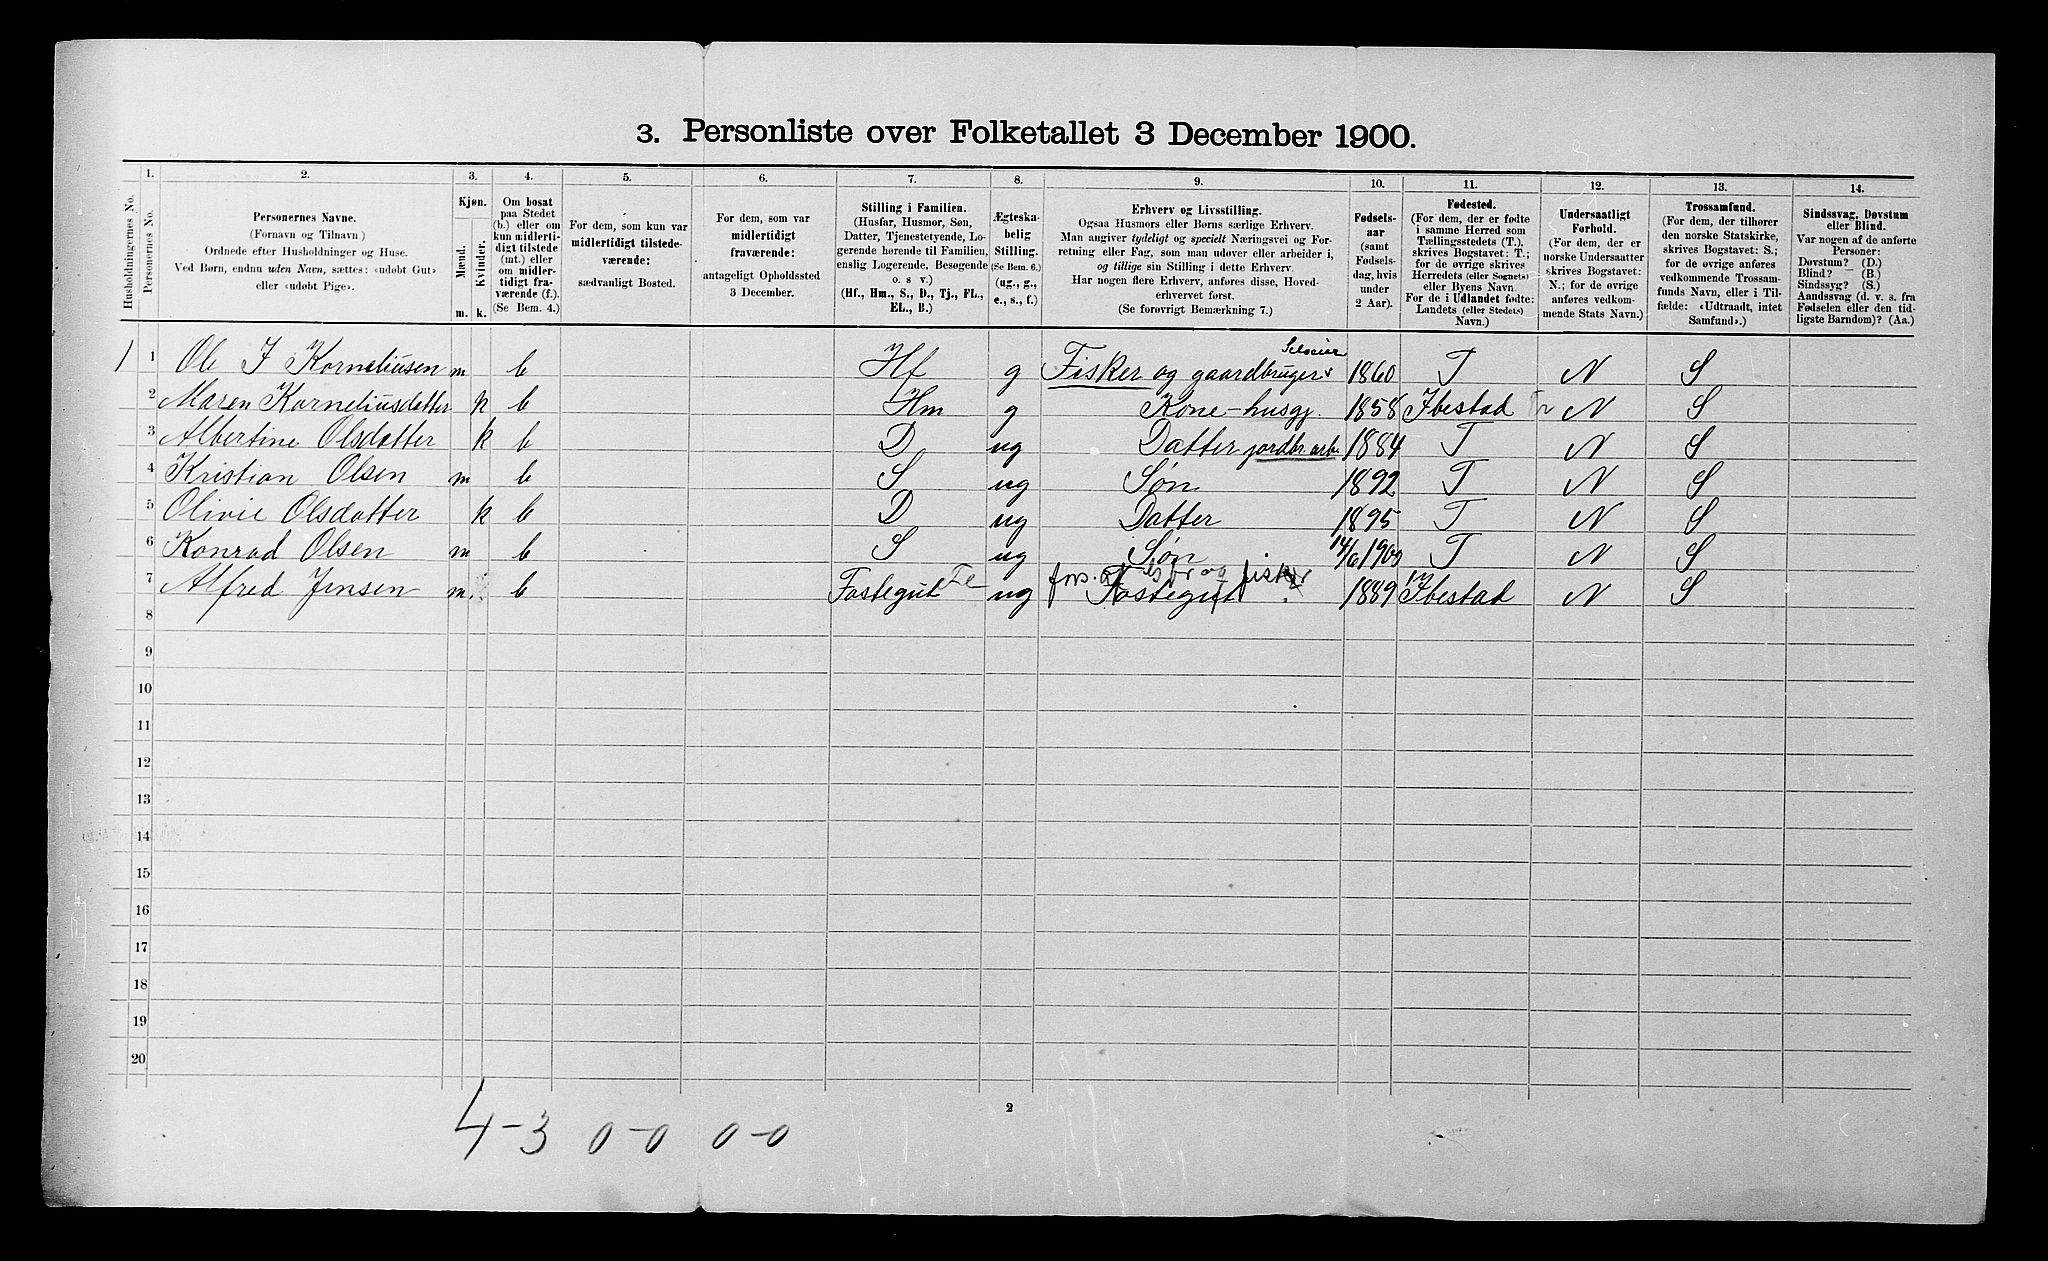 3. Personliste over Folketallet 3 December 1900.
Husholdningernes No.
1.
Personernes No.
2.
Personernes Navne.
(Fornavn og Tilnavn)
Ordnede efter Husholdninger og Huse.
Ved Børn, endnu uden Navn, sættes: «udøbt Gut»
eller «udøbt Pige».
3.
Kjøn.
Mænd.
Kvinder.
m. k.
4.
Om bosat
paa Stedet
(b.) eller om
kun midlerti-
digt tilstede
(mt.) eller
om midler-
tidigt fra-
værende (f.).
(Se Bem. 4.)
5.
For dem, som kun var
midlertidigt tilstede-
værende:
sædvanligt Bosted.
6.
For dem, som var
midlertidigt
fraværende:
antageligt Opholdssted
3 December.
7.
Stilling i Familien.
(Husfar, Husmor, Søn,
Datter, Tjenestetyende, Lo-
gerende hørende til Familien,
enslig Logerende, Besøgende
o. s v.)
(Hf., Hm., S., D., Tj., FL.,
EL., B.)
8.
Ægteska-
belig
Stilling.
(Se Bem. 6.)
(ug., g.,
e., s., f.)
9.
Erhverv og Livsstilling.
Ogsaa Husmors eller Børns særlige Erhverv.
Man angiver tydeligt og specielt Næringsvei og For-
retning eller Fag, som man udøver eller arbeider i,
og tillige sin Stilling i dette Erhverv.
Har nogen flere Erhverv, anføres disse, Hoved-
erhvervet først.
(Se forøvrigt Bemærkning 7.)
10.
Fødsels-
aar
(samt
Fødsels-
dag, hvis
under
2 Aar).
11.
Fødested.
(For dem, der er fødte
i samme Herred som
Tællingsstedets (T.),
skrives Bogstavet: T.;
for de øvrige skrives
Herredets (eller Sognets)
eller Byens Navn
For de i Udlandet fødte:
Landets (eller Stedets)
Navn.)
12.
Undersaatligt
Forhold.
(For dem, der er
norske Undersaatter
skrives Bogstavet:
N.; for de øvrige
anføres vedkom-
mende Stats Navn.)
13.
Trossamfund.
(For dem, der tilhører
den norske Statskirke,
skrives Bogstavet: S.;
for de øvrige anføres
vedkommende Trossam-
funds Navn, eller i Til-
fælde: «Udtraadt, intet
Samfund».)
14.
Sindssvag, Døvstum
eller Blind.
Var nogen af de anførte
Personer:
Døvstum? (D.)
Blind? (B.)
Sindssyg? (S.)
Aandssvag (d. v. s. fra
Fødselen eller den tid-
ligste Barndom)? (Aa.)
Selveier
1 1 Ole I Korneliusen m b Hf g Fisker og gaardbruger 1860 T N S
2 Maren Korneliusdatter k b Hm g Kone-husgj. 1858 Ibestad N S
3 Albertine Olsdatter k b D ug Datter jordbr. arb. 1884 T N S
4 Kristian Olsen m b S ug Søn 1892 T N S
5 Olivie Olsdatter k b D ug Datter 1895 T N S
6 Konrad Olsen m b S ug Søn 14/6 1900 T N S
7 Alfred Jensen m b Fostegut ug Fostegut fors. og fisker 1889 Ibestad N S
8
9
10
11
12
13
14
15
16
17
18
19
20
2
4-3 0-0 0-0